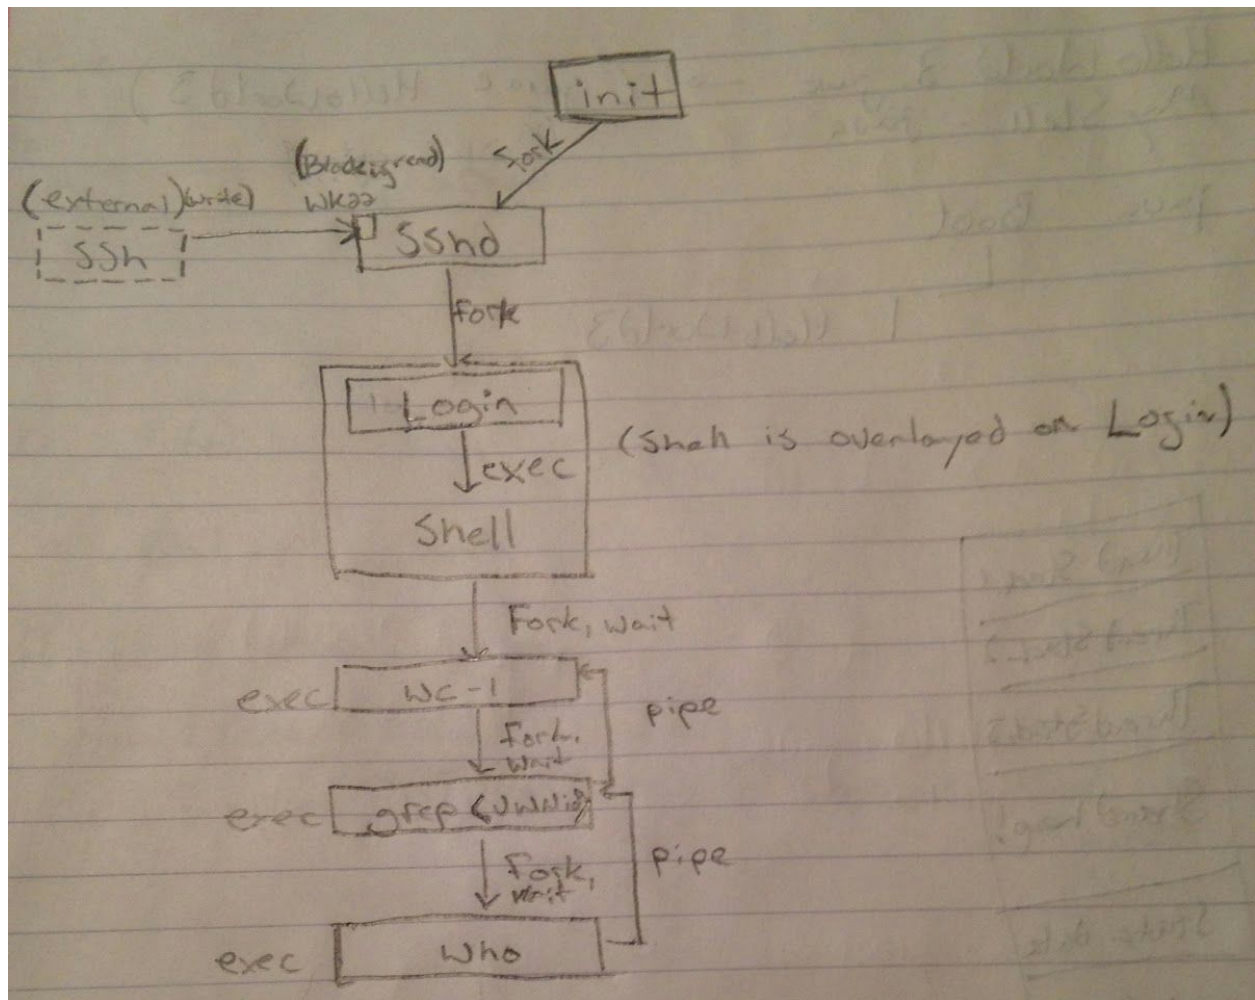 init
fork
(external) (write)
SSh
SShd
fork
Login
exec
Shell
(Shell is overlayed on Login)
Fork, wait
exec
wc -l
pipe
Fork,
wait
exec
grep
pipe
Fork,
wait
exec
who